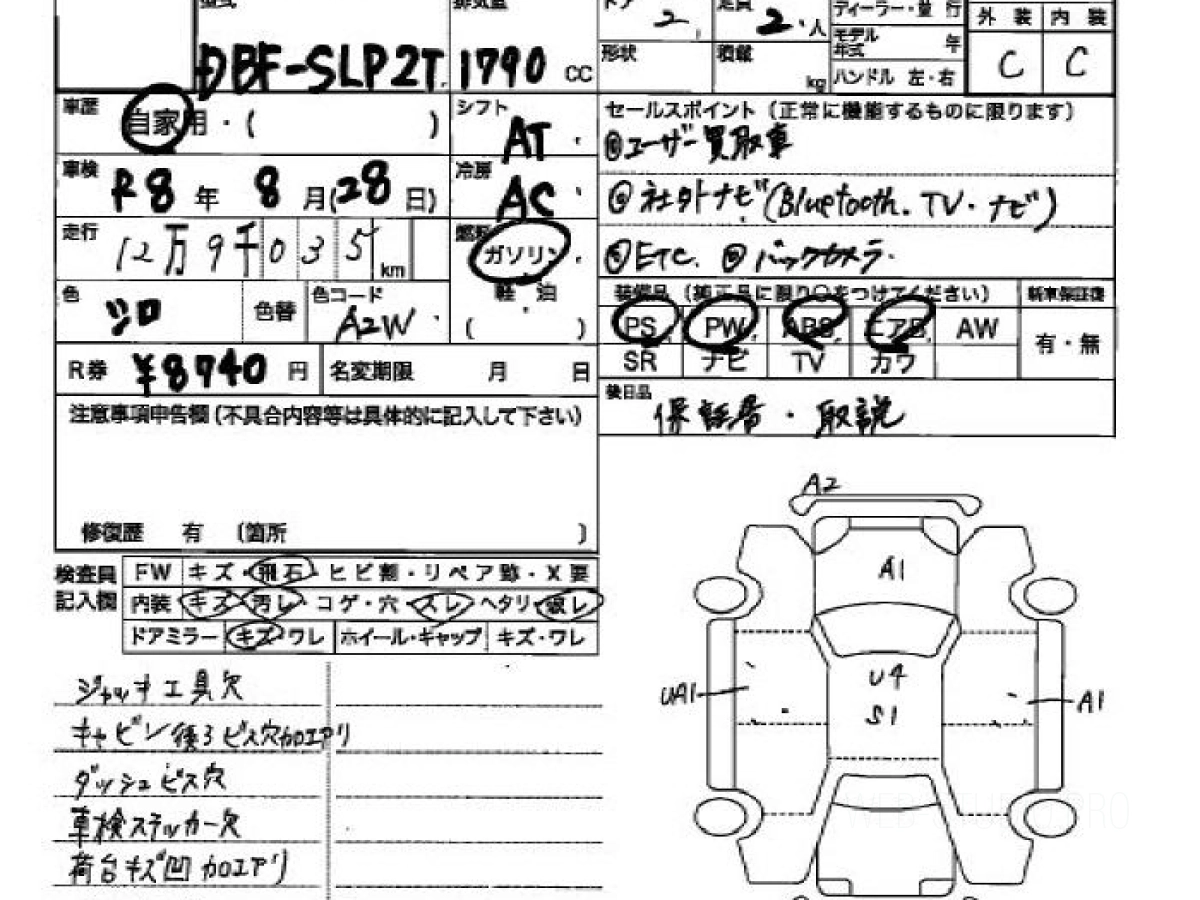 型式
排気量
ドア 2
定員 2人
ディーラー・並 行
外 装 内 装
DBF-SLP2T
1790 cc
形状
積載 kg
モデル年式 年
ハンドル 左・右
C C
車歴 自家用・( )
シフト AT
セールスポイント (正常に機能するものに限ります)
◎ユーザー買取車
車検 R8年 8月(28日)
冷房 AC
◎社外ナビ(Bluetooth. TV・ナビ)
走行 12万9千035km
燃料 ガソリン
◎ETC. ◎バックカメラ.
色 シロ
色替
色コード A2W
軽・油
( )
装備品 (純正品に限り○をつけてください)
新車保証書
PS PW ABS エアB AW
有・無
SR ナビ TV カワ
R券 ¥8740円
名変期限 月 日
後日品
保証書・取説
注意事項申告欄(不具合内容等は具体的に記入して下さい)
修復歴 有 (箇所 )
検査員記入欄
FW キズ・飛石・ヒビ割・リペア跡・X要
内装 キズ・汚レ・コゲ・穴・スレ・ヘタリ・破レ
ドアミラー キズ・ワレ ホイール・キャップ キズ・ワレ
ジャッキ工具欠
キャビン後ろビス穴加エアリ
ダッシュビス穴
車検ステッカー欠
荷台キズ凹加エアリ
A2
A1
U4
S1
UA1
A1